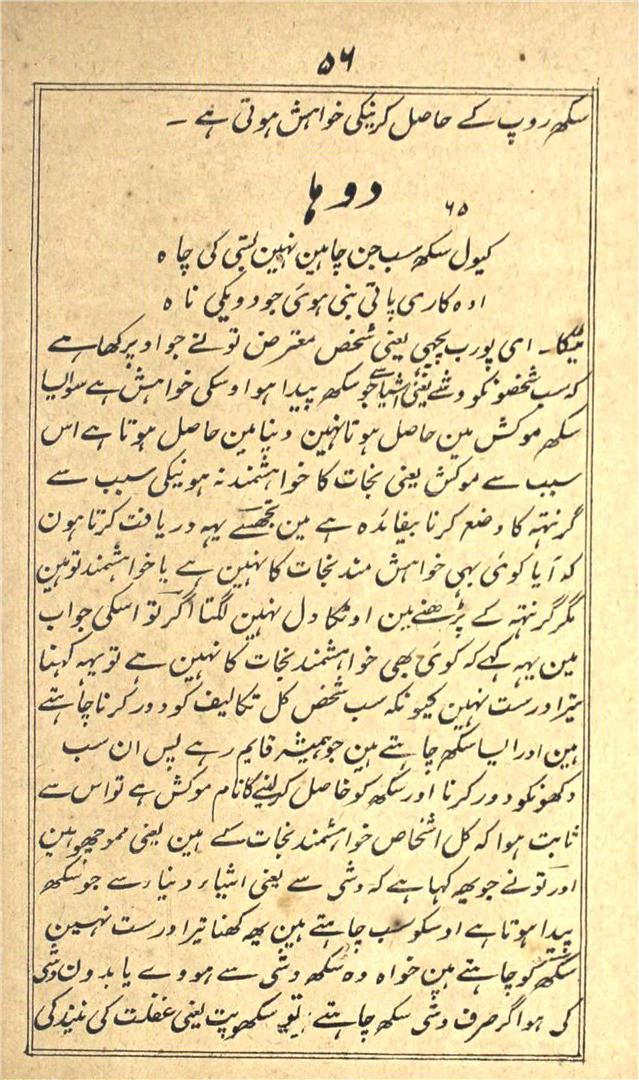 ۵۶
سکھ روپ کے حاصل کرنیکی خواہش ہوتی ہے ۔
دوہا
۶۵
کیول سکھ سب جن چاہین نہین بستی کی چاہ
ادہکاری یاتی بنی ہوئی جو دویکی ناہ
ٹیکا۔ ای پورب پچہی یعنی شخص معترض تونے جو اوپر کہا ہے
کہ سب شخصونکو وشے یعنی اشیا سے جو سکھ پیدا ہو اوسکی خواہش ہے سو ایسا
سکھ موکش مین حاصل ہوتا نہین دنیا مین حاصل ہوتا ہے اس
سبب سے موکش یعنی نجات کا خواہشمند نہ ہونیکی سبب سے
گرنتہہ کا وضع کرنا بیفایدہ ہے مین تجھسے یہہ دریافت کرتا ہون
کہ آیا کوئی بہی خواہش مند نجات کا نہین ہے یا خواہشمند تو ہین
مگر گرنتہہ کے پڑھنے مین اونکا دل نہین لگتا اگر تو اسکی جواب
مین یہہ کہے کہ کوئی بھی خواہشمند نجات کا نہین ہے تو یہہ کہنا
تیرا درست نہین کیونکہ سب شخص کل تکالیف کو دور کرنا چاہتے
ہین اور ایسا سکھ چاہتے ہین جو ہمیشہ قایم رہے پس ان سب
دکھونکو دور کرنا اور سکھ کو حاصل کرلینے کا نام موکش ہے تو اس سے
ثابت ہوا کہ کل اشخاص خواہشمند نجات کے ہین یعنی مموچھو ہین
اور تونے جو یھ کہا ہے کہ وشی سے یعنی اشیاء دنیا رسے جو سکھ
پیدا ہوتا ہے اوسکو سب چاہتے ہین یھ کھنا تیرا درست نہین
سکھ کو چاہتے ہین خواہ وہ سکھ وشی سے ہووے یا بدون وشی
کی ہو اگر صرف وشی سکھ چاہتے تو سکھوپت یعنی غفلت کی نیند کی